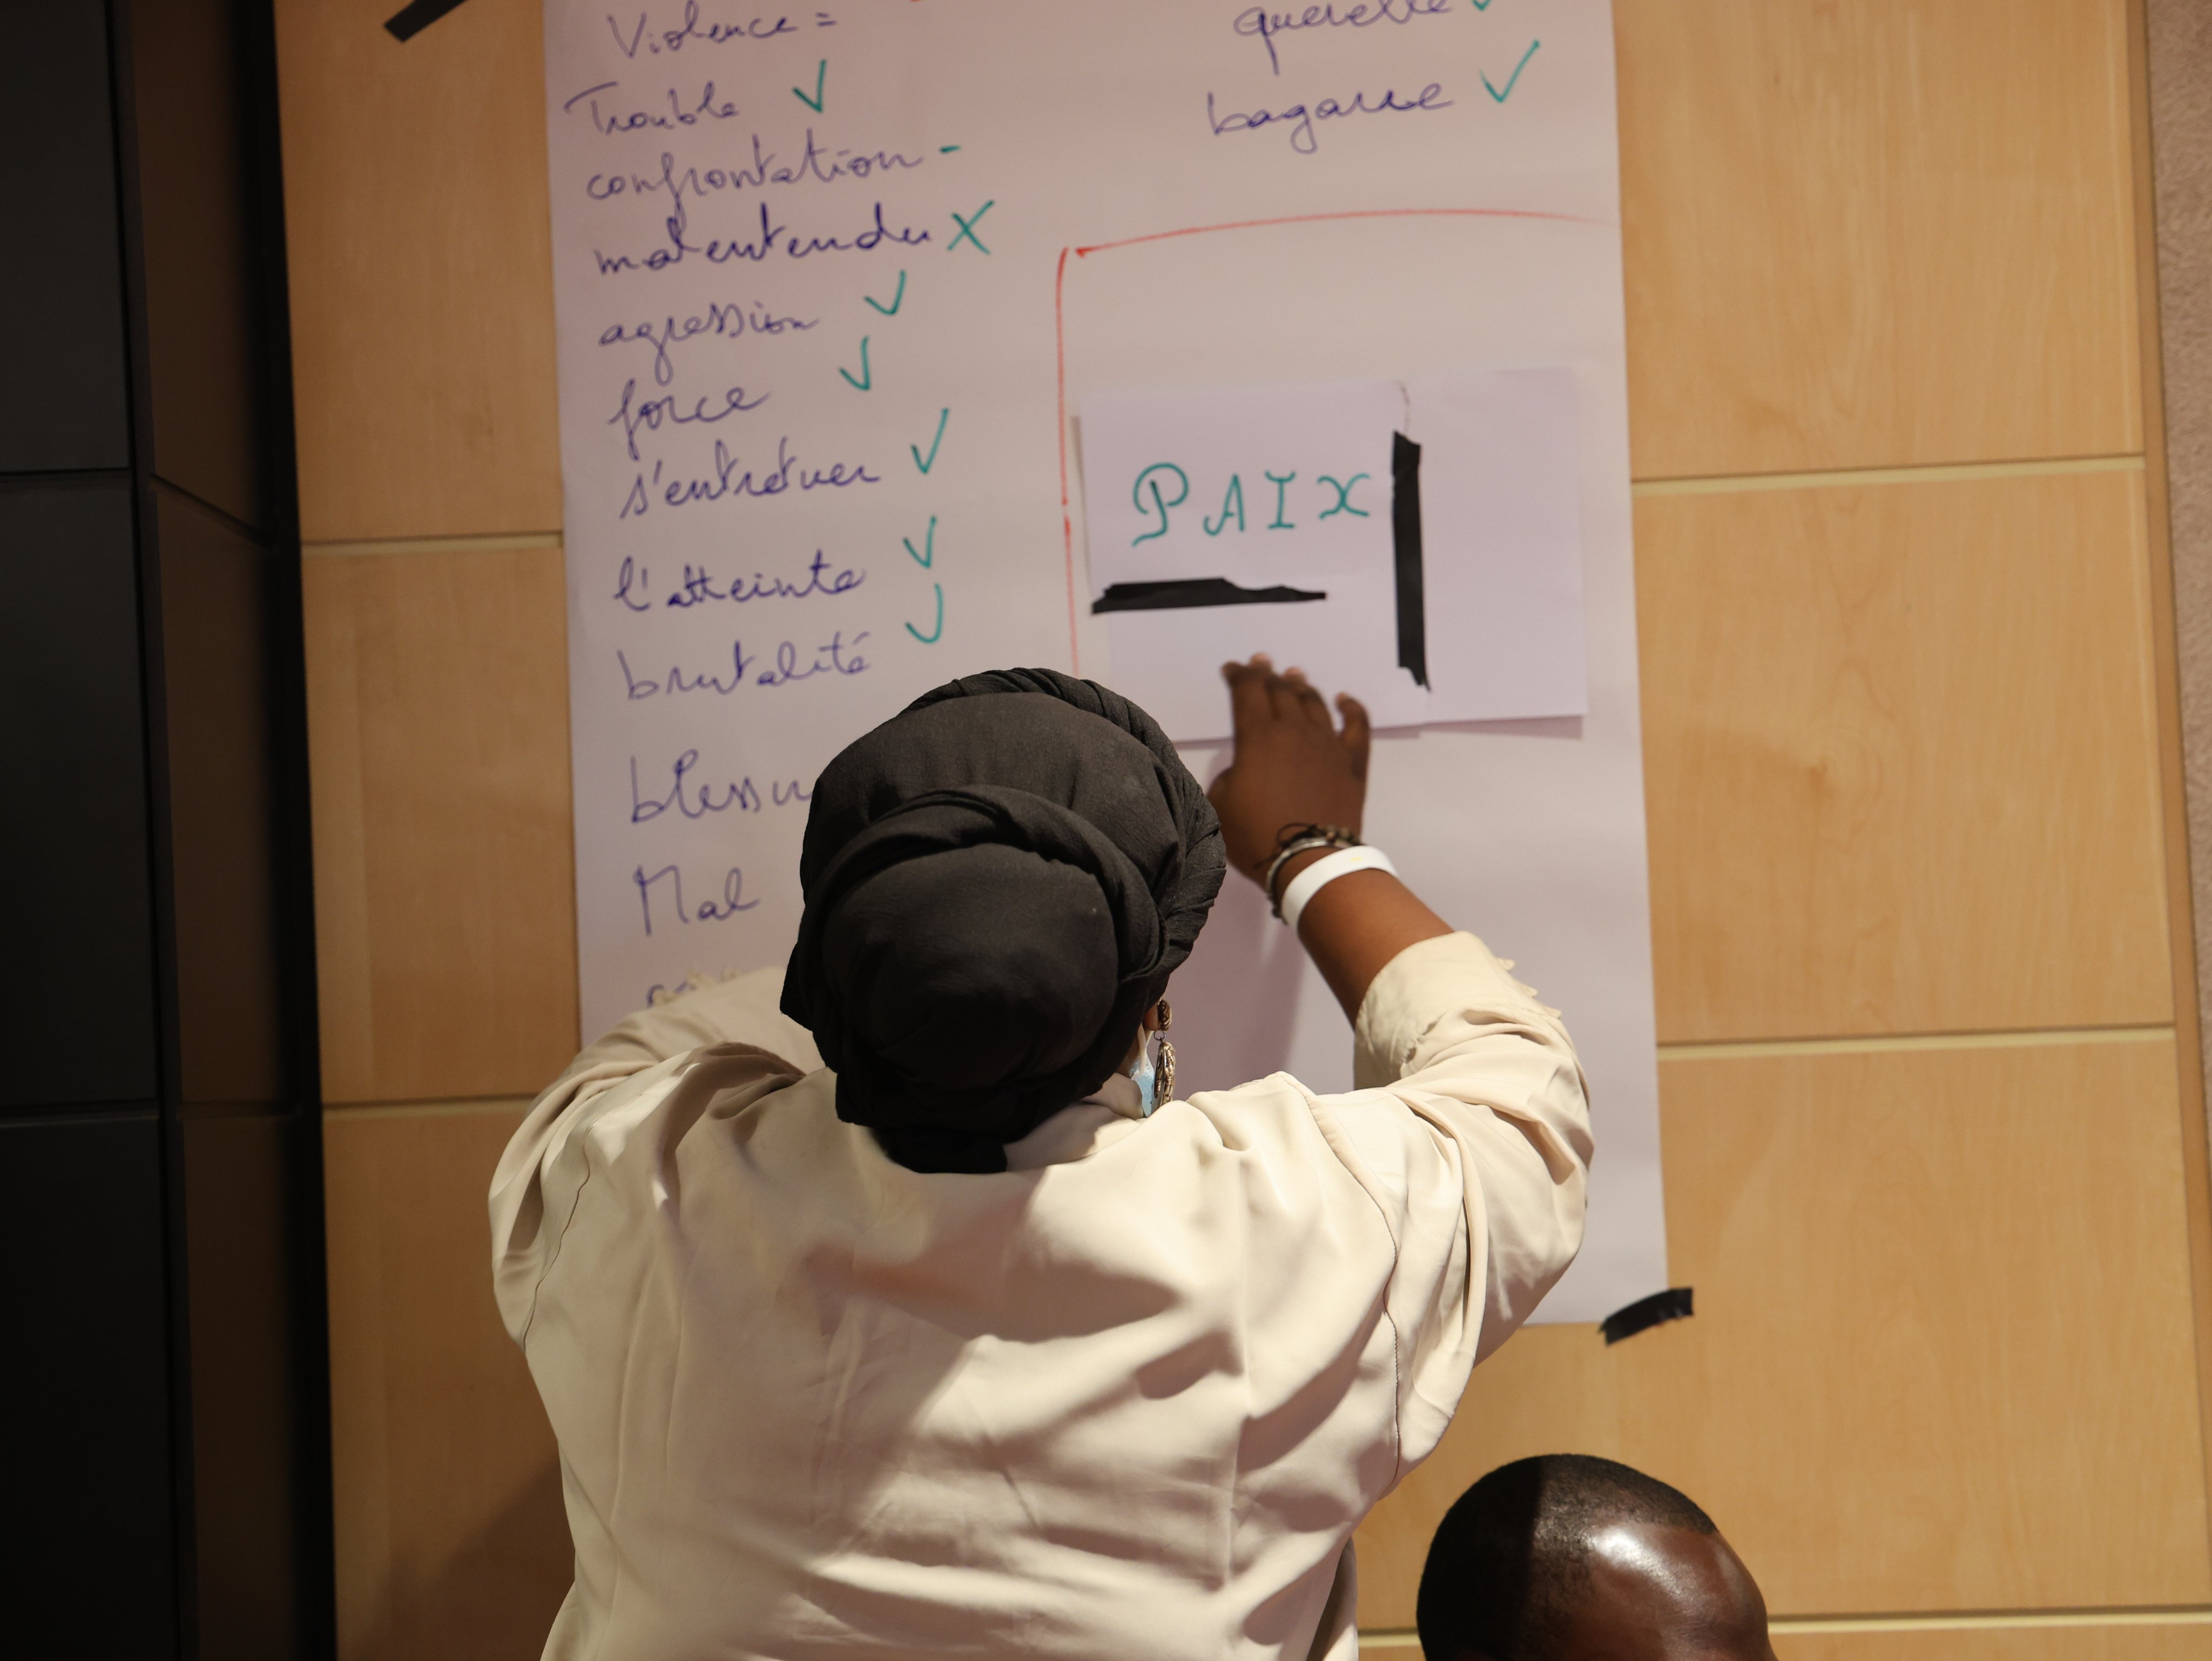 Violence =
Trouble ✓
confrontation -
malentendu X
agression ✓
force ✓
s'entretuer ✓
l'atteinte ✓
brutalité ✓
Mal
querelle ✓
bagarre ✓
PAIX